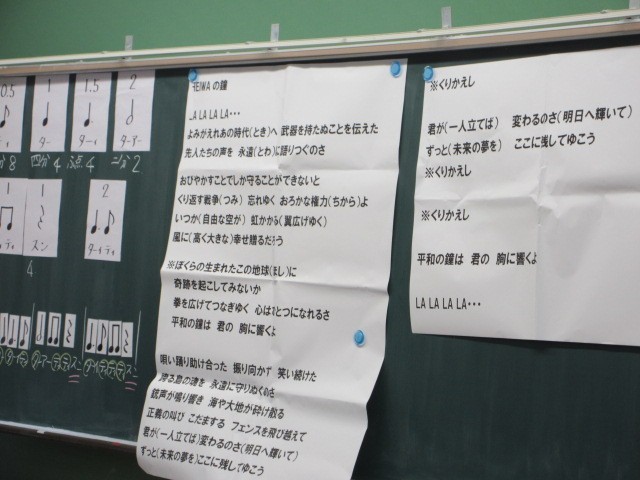 0.5
1
1.5
2
ターィ
ターアー
か8
四分4
ふ点4
二ぶ2
1
1
2
ティティ
スン
ターィティ
4
HEIWAの鐘
LA LA LA LA・・・
よみがえれあの時代(とき)へ 武器を持たぬことを伝えた
先人たちの声を 永遠(とわ)に語りつぐのさ
おびやかすことでしか守ることができないと
くり返す戦争(つみ) 忘れゆく おろかな権力(ちから)よ
いつか(自由な空が) 虹かかる(翼広げゆく)
風に(高く大きな)幸せ贈るだろう
※ぼくらの生まれたこの地球(ほし)に
奇跡を起こしてみないか
拳を広げてつなぎゆく 心はひとつになれるさ
平和の鐘は 君の 胸に響くよ
唄い踊り助け合った 振り向かず 笑い続けた
誇る島の魂を 永遠に守りぬくのさ
銃声が鳴り響き 海や大地が砕け散る
正義の叫び こだまする フェンスを飛び越えて
君が(一人立てば)変わるのさ(明日へ輝いて)
ずっと(未来の夢を)ここに残してゆこう
※くりかえし
君が(一人立てば) 変わるのさ(明日へ輝いて)
ずっと(未来の夢を) ここに残してゆこう
※くりかえし
※くりかえし
平和の鐘は 君の 胸に響くよ
LA LA LA LA・・・